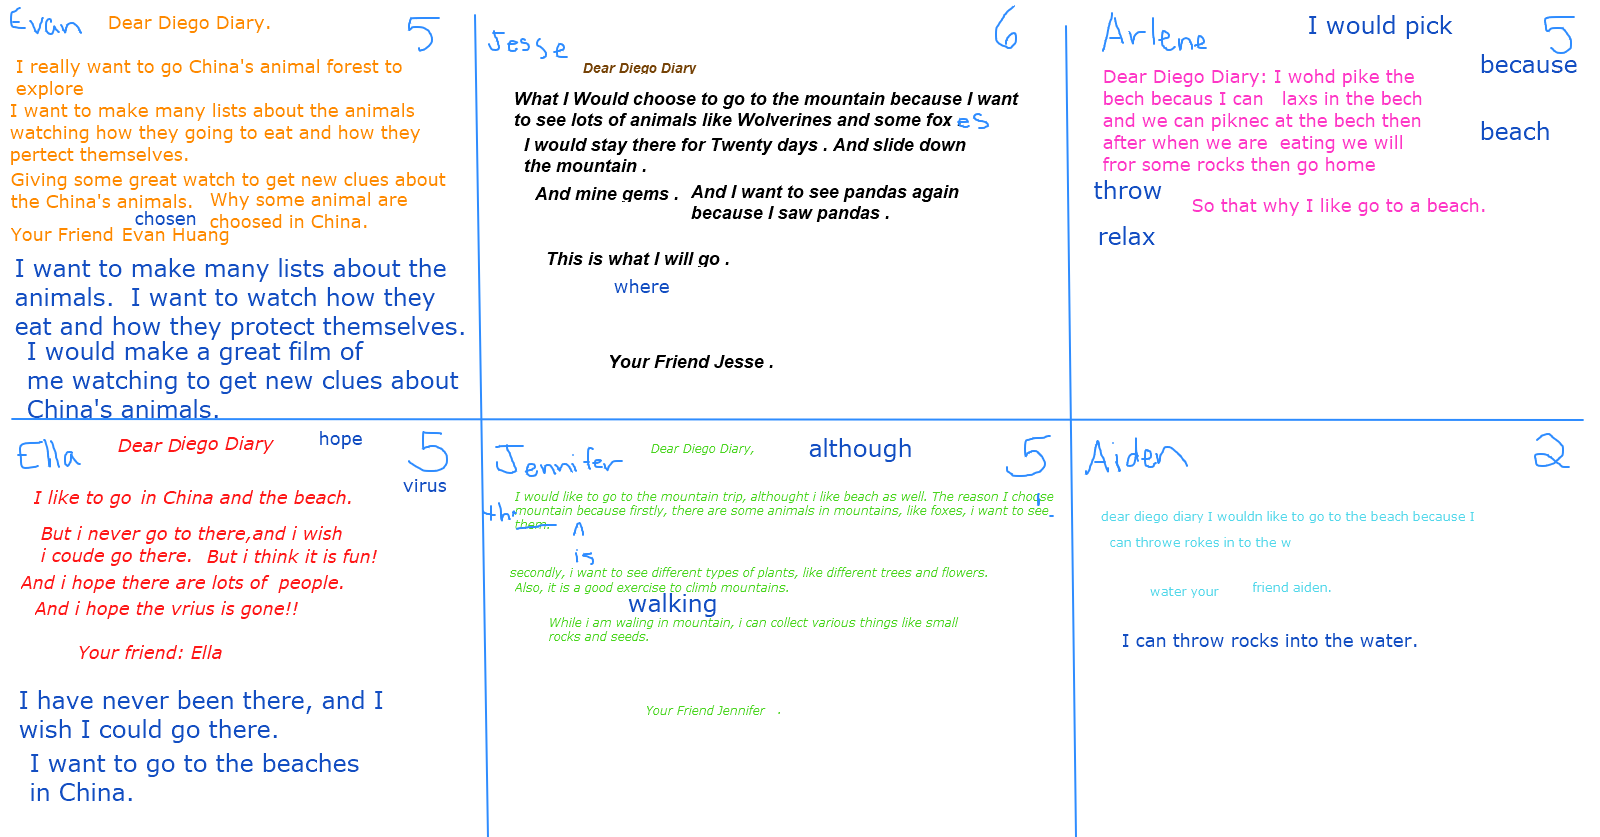 Evan Dear Diego Diary. 5
I really want to go China's animal forest to
explore
I want to make many lists about the animals
watching how they going to eat and how they
pertect themselves.
Giving some great watch to get new clues about
the China's animals. Why some animal are
chosen choosed in China.
Your Friend Evan Huang
I want to make many lists about the
animals. I want to watch how they
eat and how they protect themselves.
I would make a great film of
me watching to get new clues about
China's animals.
Jesse 6
Dear Diego Diary
What I Would choose to go to the mountain because I want
to see lots of animals like Wolverines and some fox es
I would stay there for Twenty days . And slide down
the mountain .
And mine gems . And I want to see pandas again
because I saw pandas .
This is what I will go .
where
Your Friend Jesse .
Arlene I would pick 5
because
Dear Diego Diary: I wohd pike the
bech becaus I can laxs in the bech
and we can piknec at the bech then
after when we are eating we will
fror some rocks then go home
beach
throw
So that why I like go to a beach.
relax
Ella Dear Diego Diary hope 5
virus
I like to go in China and the beach.
But i never go to there,and i wish
i coude go there. But i think it is fun!
And i hope there are lots of people.
And i hope the vrius is gone!!
Your friend: Ella
I have never been there, and I
wish I could go there.
I want to go to the beaches
in China.
Jennifer Dear Diego Diary, although 5
I would like to go to the mountain trip, althought i like beach as well. The reason I choose
mountain because firstly, there are some animals in mountains, like foxes, i want to see
them.
is
secondly, i want to see different types of plants, like different trees and flowers.
Also, it is a good exercise to climb mountains.
walking
While i am waling in mountain, i can collect various things like small
rocks and seeds.
Your Friend Jennifer .
Aiden 2
dear diego diary I wouldn like to go to the beach because I
can throwe rokes in to the w
water your friend aiden.
I can throw rocks into the water.